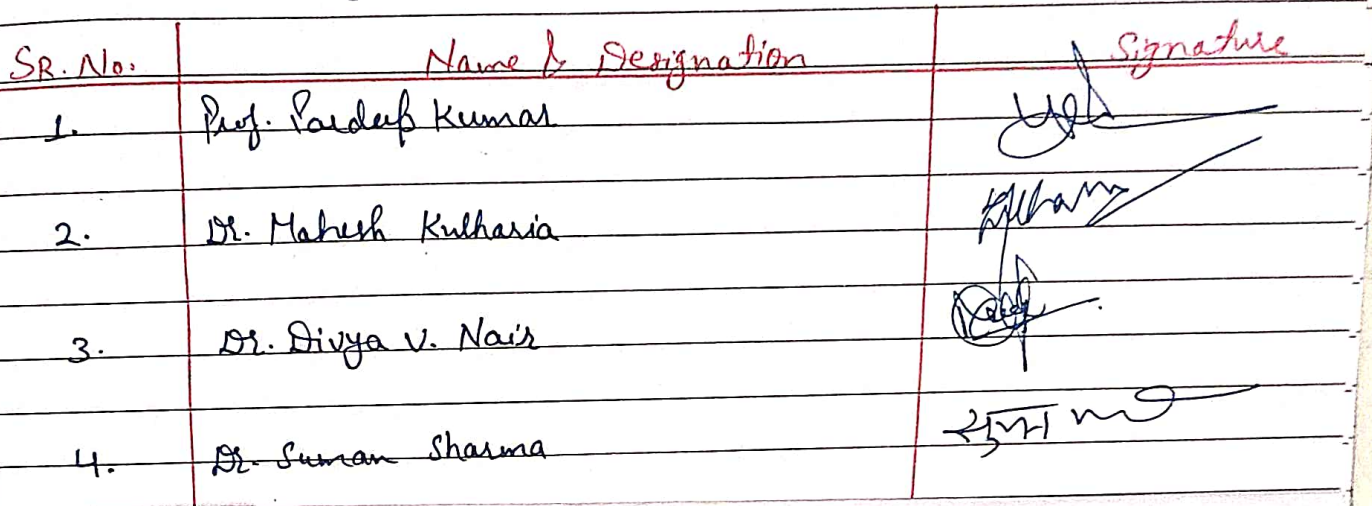 SR. No. Name & Designation Signature
1. Prof. Pardeep Kumar
2. Dr. Mahesh Kulharia
3. Dr. Divya V. Nair
4. Dr. Suman Sharma